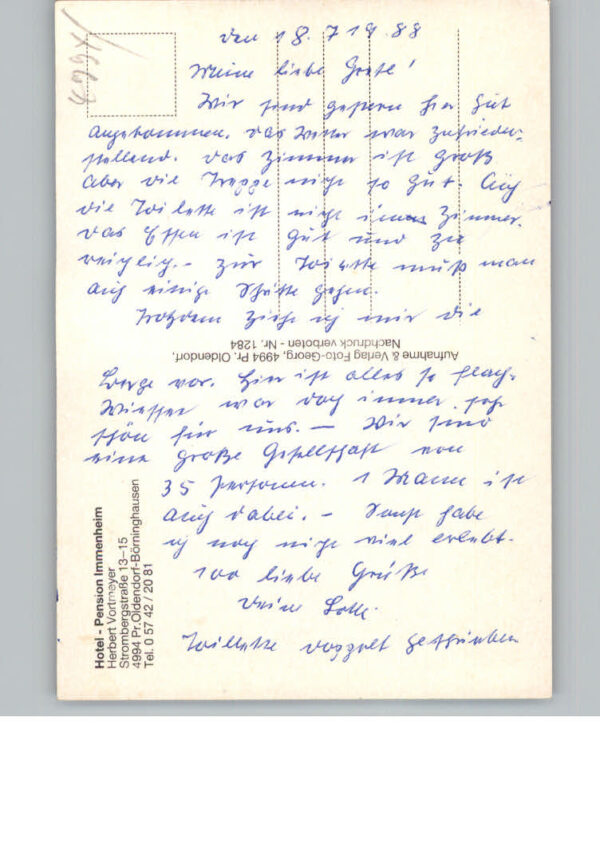 4994
den 18. 7 19 88
Meine liebe Gretl!
Wir sind gestern hier gut
angekommen. Das Wetter war zufrieden-
stellend. Das Zimmer ist groß
aber die Treppe nicht so gut. Auch
die Toilette ist nicht im Zimmer.
Das Essen ist gut und zu
reichlich. - Zur Toilette muß man
auch einige Schritte gehen.
Trotzdem ziehe ich mir die
Aufnahme & Verlag Foto-Georg, 4994 Pr. Oldendorf.
Nachdruck verboten - Nr. 1284
Berge vor. Hier ist alles so flach.
war doch immer sehr
schön für uns. - Wir sind
eine große Gesellschaft von
35 Personen. 1 Mann ist
auch dabei. - Sonst habe
ich noch nicht viel erlebt.
100 liebe Grüße
Deine Lotte.
Toillette doppelt geschrieben
Hotel - Pension Immenheim
Herbert Vortmeyer
Strombergstraße 13–15
4994 Pr.Oldendorf-Börninghausen
Tel. 0 57 42 / 20 81